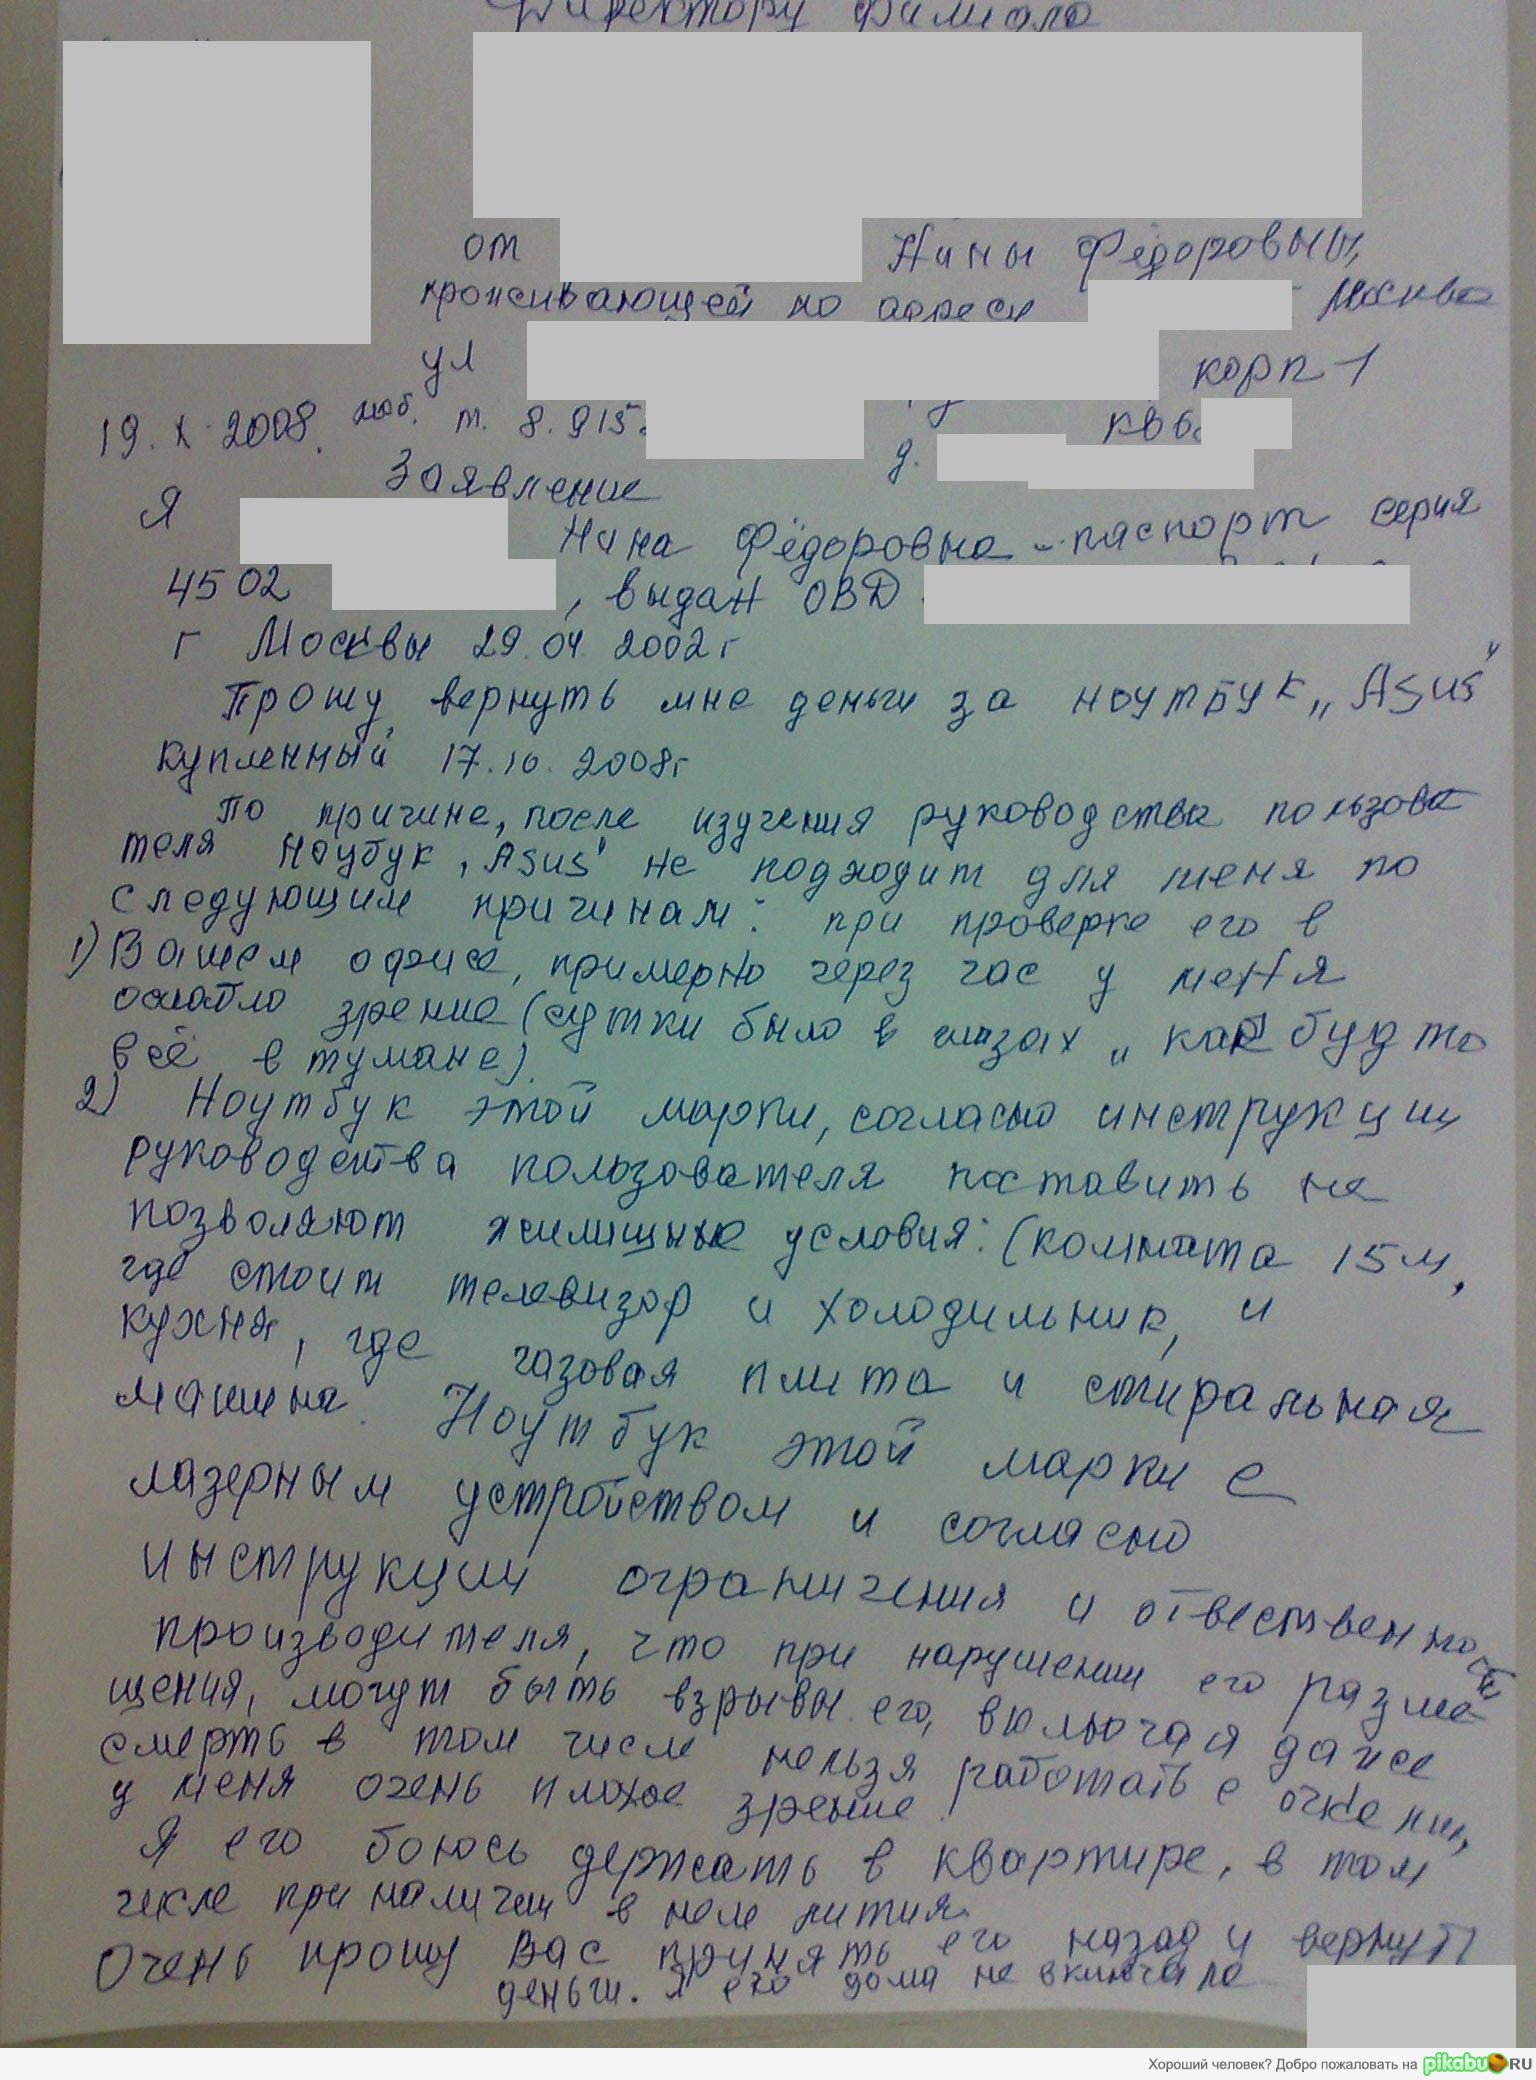 Директору филиала
от Нины Фёдоровны,
проживающей по адресу Москва
ул корп-1
19.X.2008. моб. т. 8.915. кв 6
д.
Заявление
Я Нина Фёдоровна - паспорт серия
4502 , выдан ОВД
г Москвы 29.04 2002г
Прошу вернуть мне деньги за ноутбук „Asus"
купленный 17.10.2008г
По причине, после изучения руководства пользова
теля Ноубук „Asus" не подходит для меня по
следующим причинам: при проверке его в
1) Вашем офисе, примерно через час у меня
ослабло зрение (сутки было в глазах „как будто
всё в тумане).
2) Ноутбук этой марки, согласно инструкции
руководства пользователя поставить не
позволяют жилищные условия: (комната 15м,
где стоит телевизор и холодильник, и
кухня, где газовая плита и стиральная
машина. Ноутбук этой марки с
лазерным устройством и согласно
инструкции ограничения и отвественности
производителя, что при нарушении его разме
щения, могут быть взрывы его, включая даже
смерть в том числе нельзя работать с очками,
у меня очень плохое зрение.
Я его боюсь держать в квартире, в том
числе при наличии в нем лития.
Очень прошу Вас принять его назад и вернуть
деньги. Я его дома не включала
Хороший человек? Добро пожаловать на pikabu.RU